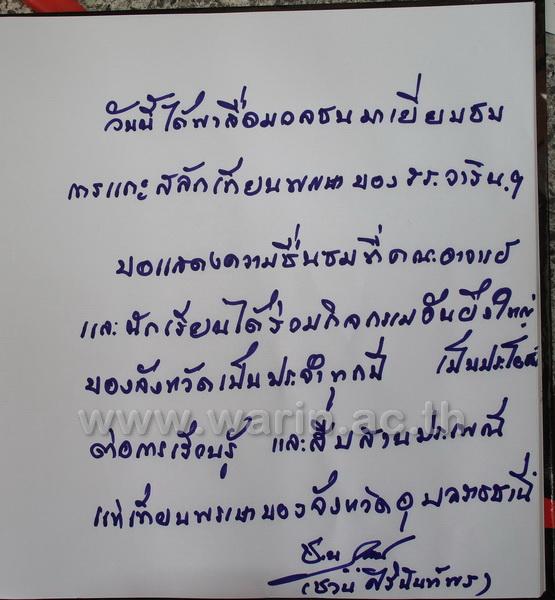 วันนี้ได้พาสื่อมวลชนมาเยี่ยมชม
การแกะสลักเทียนพรรษาของ รร.วาริน ฯ
ขอแสดงความชื่นชมที่คณะอาจารย์
และนักเรียนได้ร่วมกิจกรรมอันยิ่งใหญ่
ของจังหวัดเป็นประจำทุกปี เป็นประโยชน์
www.warin.ac.th
ต่อการเรียนรู้ และสืบสานประเพณี
แห่เทียนพรรษาของจังหวัดอุบลราชธานี